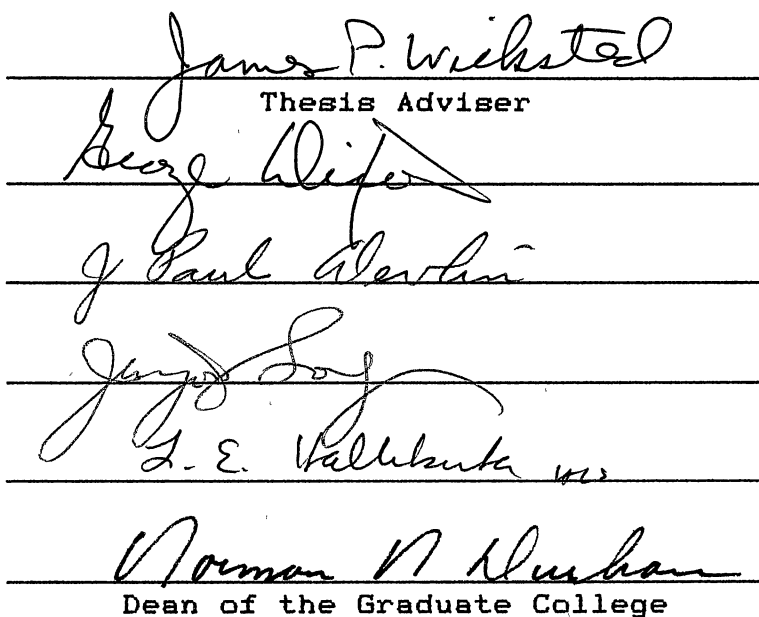 James P. Wicksted
Thesis Adviser
George Dixon
J Paul Devlin
L. E. Halliburton
Norman N Durham
Dean of the Graduate College